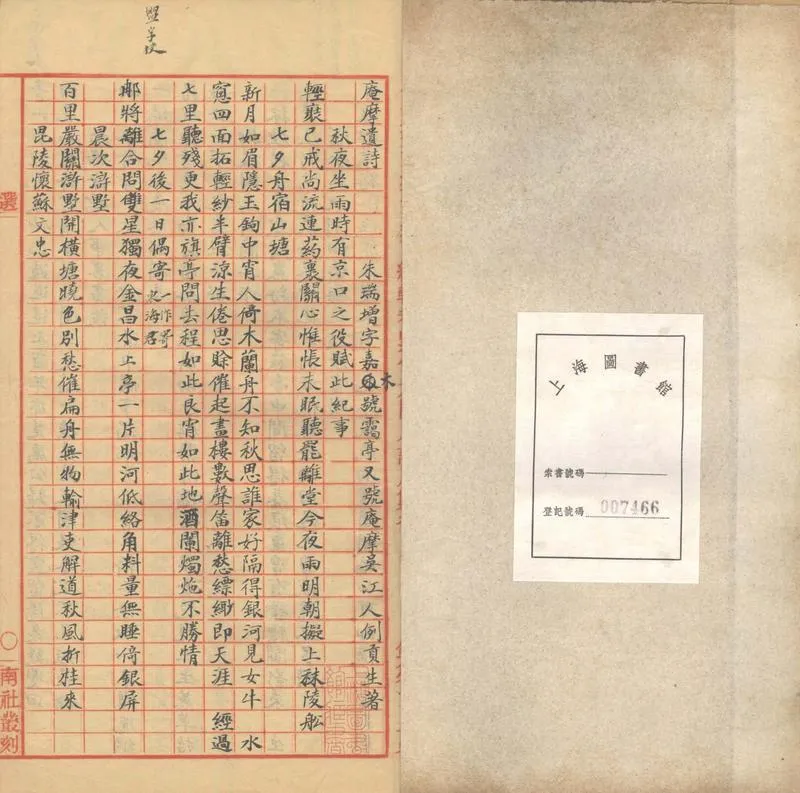 庵摩遺詩　朱瑞增字嘉木號靄亭又號庵摩吳江人例貢生著
秋夜坐雨時有京口之役賦此紀事
輕裘已戒尚流連葯裹關心惟悵未眠聽罷離堂今夜雨明朝擬上秣陵舩
七夕舟宿山塘
新月如眉隱玉鉤中宵人倚木蘭舟不知秋思誰家好隔得銀河見女牛　水
窻四面拓輕紗半臂涼生倦思賒催起畫樓數聲笛離愁縹緲即天涯　經過
七里聽殘更我亦旗亭問去程如此良宵如此地酒闌燭灺不勝情
七夕後一日偶寄
一作寄
史海君
那將離合問雙星獨夜金昌水上亭一片明河低絡角料量無睡倚銀屏
晨次滸墅
百里嚴關滸墅開橫塘曉色別愁催扁舟無物輸津吏解道秋風折桂來
毘陵懷蘇文忠
選
南社叢刻
上海圖書館
索書號碼
登記號碼 007466